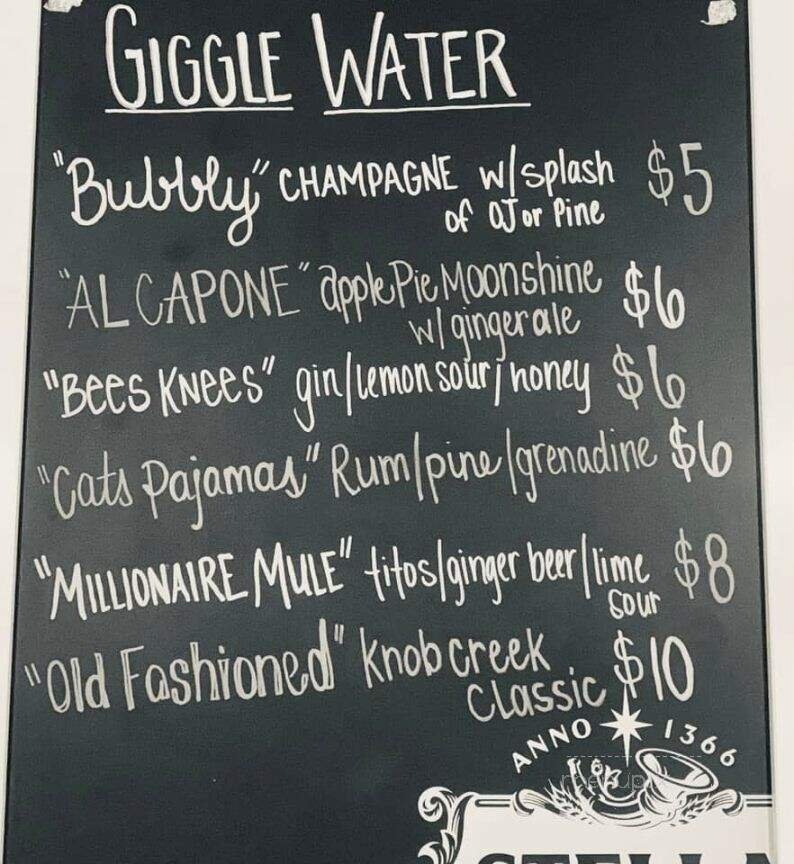 GIGGLE WATER
"Bubbly" CHAMPAGNE w/splash $5
of OJ or Pine
"AL CAPONE" apple Pie Moonshine $6
w/gingerale
"Bees Knees" gin/lemon sour/honey $6
"Cats Pajamas" Rum/pine/grenadine $6
"MILLIONAIRE MULE" titos/ginger beer/lime $8
sour
"Old Fashioned" Knob creek $10
classic
ANNO 1366